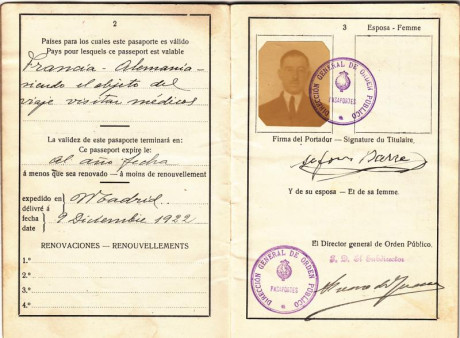 2
Países para los cuales este pasaporte es válido
Pays pour lesquels ce passeport est valable
Francia - Alemania -
siendo el objeto del
viaje visitar médicos
La validez de este pasaporte terminará en:
Ce passeport expire le:
al año fecha
á menos que sea renovado — á moins de renouvellement
expedido en
délivré á
Madrid
fecha
date
9 Diciembre 1922
RENOVACIONES — RENOUVELLEMENTS
1.º
2.º
3.º
4.º
3
Esposa - Femme
DIRECCIÓN GENERAL DE ORDEN PÚBLICO
PASAPORTES
Firma del Portador — Signature du Titulaire,
Y de su esposa — Et de sa femme.
El Director general de Orden Público.
DIRECCIÓN GENERAL DE ORDEN PÚBLICO
PASAPORTES